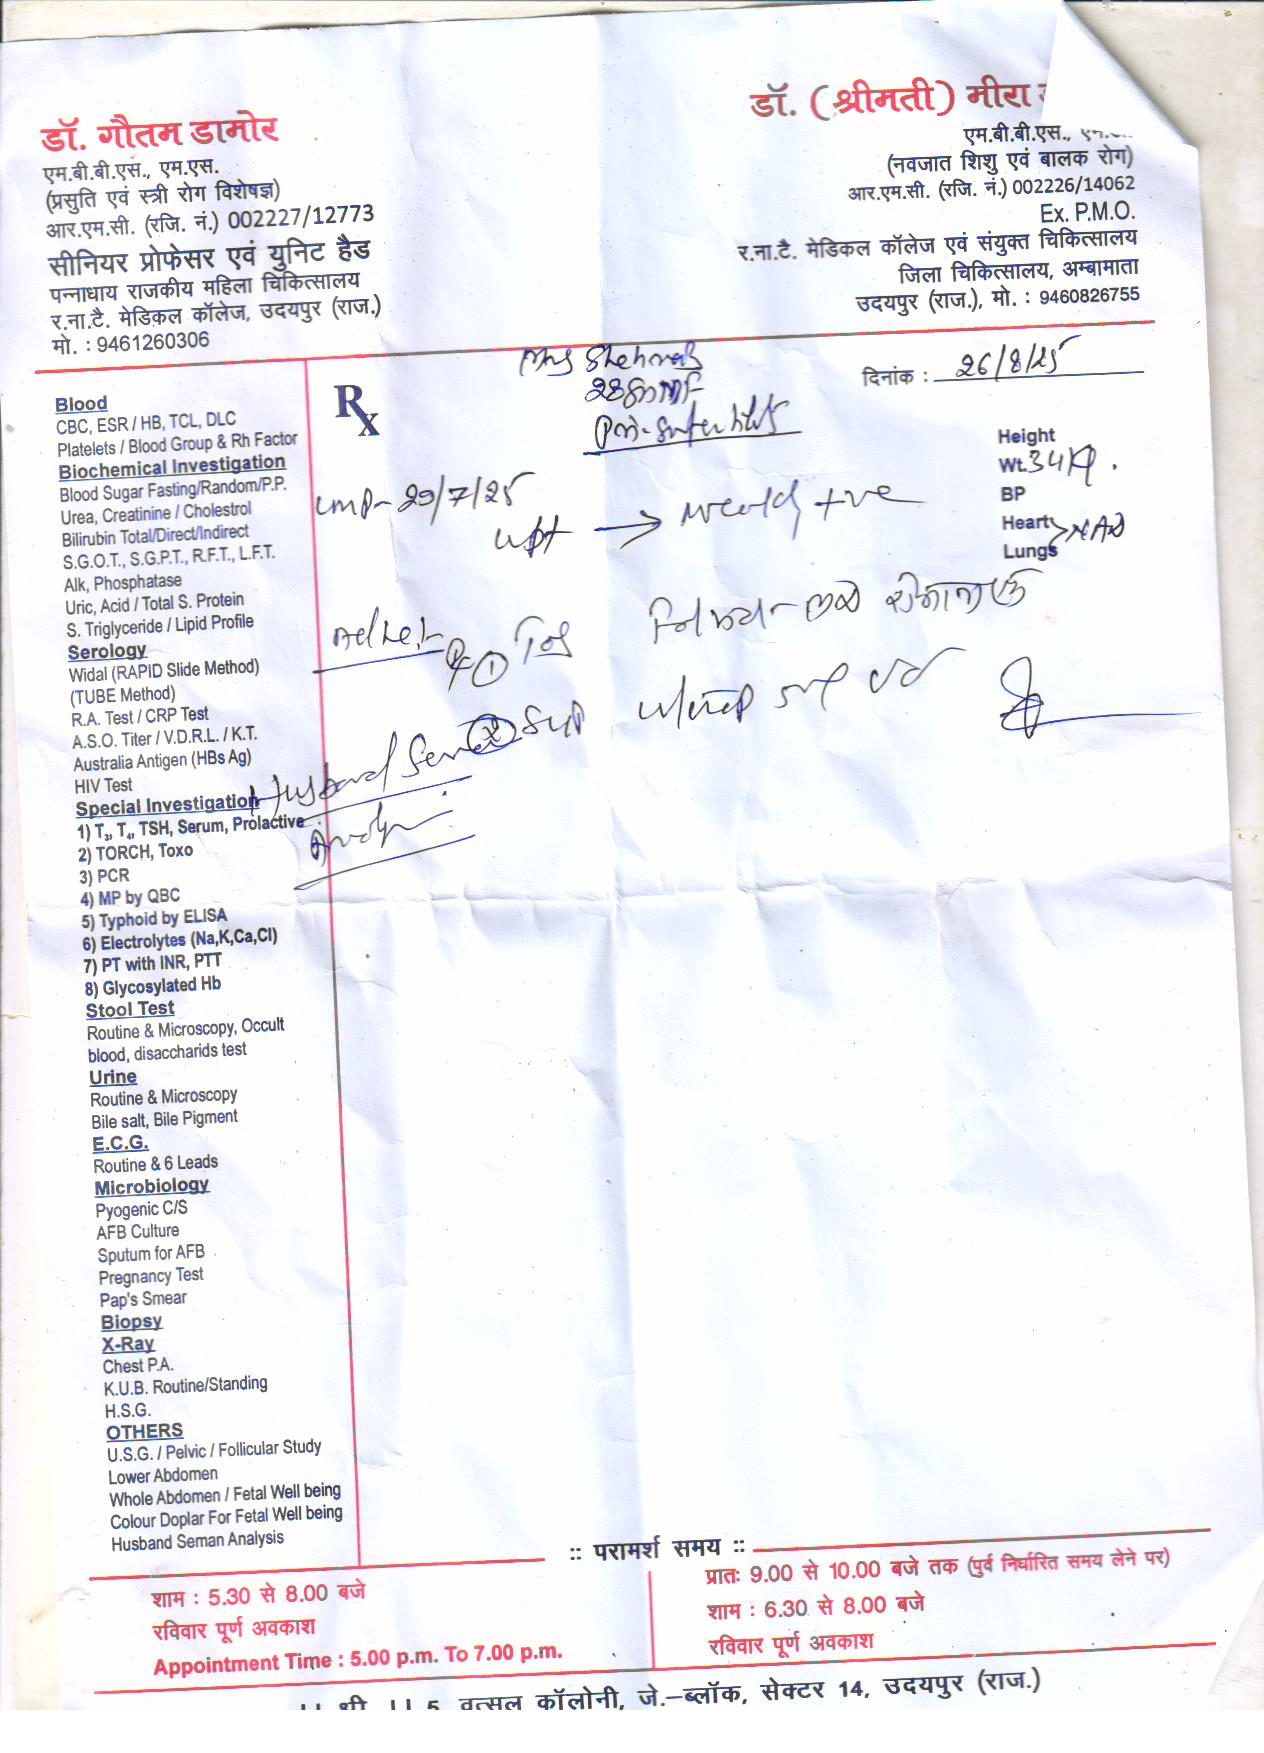 डॉ. गौतम डामोर
एम.बी.बी.एस., एम.एस.
(प्रसुति एवं स्त्री रोग विशेषज्ञ)
आर.एम.सी. (रजि. नं.) 002227/12773
सीनियर प्रोफेसर एवं युनिट हैड
पन्नाधाय राजकीय महिला चिकित्सालय
र.ना.टै. मेडिकल कॉलेज, उदयपुर (राज.)
मो. : 9461260306
डॉ. (श्रीमती) मीरा
एम.बी.बी.एस.,
(नवजात शिशु एवं बालक रोग)
आर.एम.सी. (रजि. नं.) 002226/14062
Ex. P.M.O.
र.ना.टै. मेडिकल कॉलेज एवं संयुक्त चिकित्सालय
जिला चिकित्सालय, अम्बामाता
उदयपुर (राज.), मो. : 9460826755
दिनांक : 26/8/25
Rx
Height
Wt. 34 kg.
BP
Heart
Lungs NAD
LMP- 29/7/25
UPT → weakly +ve
Adv:-
Husband Semen
Blood
CBC, ESR / HB, TCL, DLC
Platelets / Blood Group & Rh Factor
Biochemical Investigation
Blood Sugar Fasting/Random/P.P.
Urea, Creatinine / Cholestrol
Bilirubin Total/Direct/Indirect
S.G.O.T., S.G.P.T., R.F.T., L.F.T.
Alk, Phosphatase
Uric, Acid / Total S. Protein
S. Triglyceride / Lipid Profile
Serology
Widal (RAPID Slide Method)
(TUBE Method)
R.A. Test / CRP Test
A.S.O. Titer / V.D.R.L. / K.T.
Australia Antigen (HBs Ag)
HIV Test
Special Investigation
1) T₃, T₄, TSH, Serum, Prolactive
2) TORCH, Toxo
3) PCR
4) MP by QBC
5) Typhoid by ELISA
6) Electrolytes (Na,K,Ca,Cl)
7) PT with INR, PTT
8) Glycosylated Hb
Stool Test
Routine & Microscopy, Occult
blood, disaccharids test
Urine
Routine & Microscopy
Bile salt, Bile Pigment
E.C.G.
Routine & 6 Leads
Microbiology
Pyogenic C/S
AFB Culture
Sputum for AFB
Pregnancy Test
Pap's Smear
Biopsy
X-Ray
Chest P.A.
K.U.B. Routine/Standing
H.S.G.
OTHERS
U.S.G. / Pelvic / Follicular Study
Lower Abdomen
Whole Abdomen / Fetal Well being
Colour Doplar For Fetal Well being
Husband Seman Analysis
:: परामर्श समय ::
शाम : 5.30 से 8.00 बजे
रविवार पूर्ण अवकाश
Appointment Time : 5.00 p.m. To 7.00 p.m.
प्रातः 9.00 से 10.00 बजे तक (पुर्व निर्धारित समय लेने पर)
शाम : 6.30 से 8.00 बजे
रविवार पूर्ण अवकाश
5, वत्सल कॉलोनी, जे.–ब्लॉक, सेक्टर 14, उदयपुर (राज.)